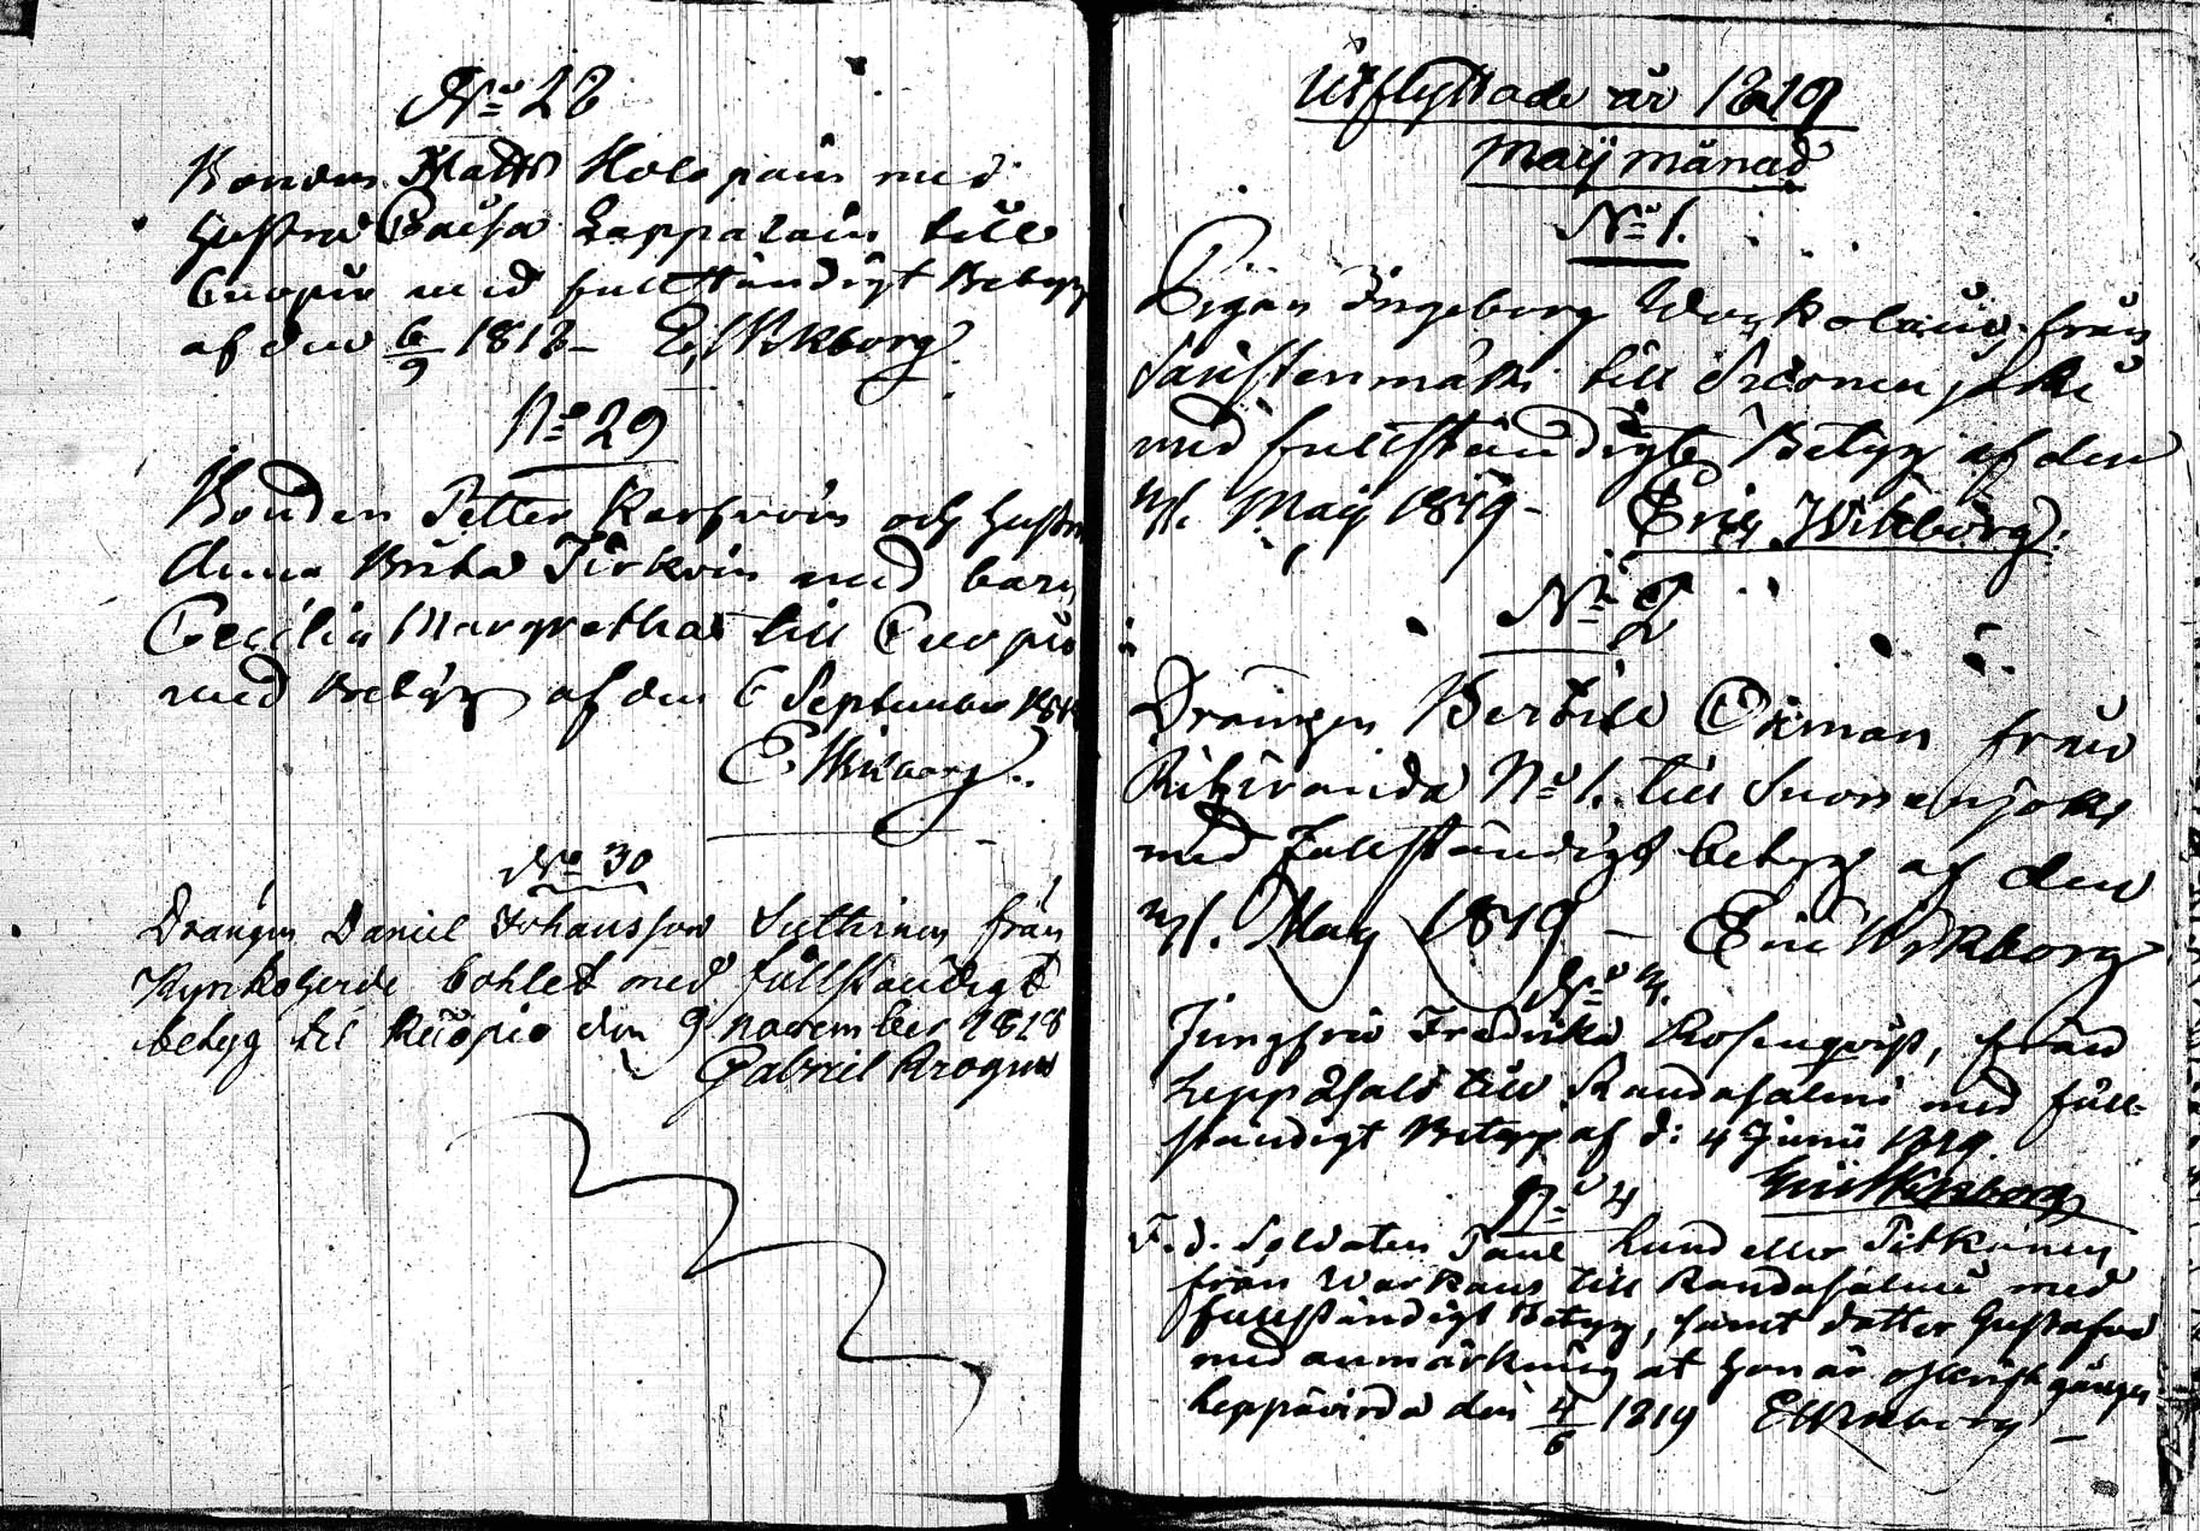 No 28
Bonden Matts Holopain med
hustru Caisa Lappalain till
Cuopio med fullständigt Betyg
af den 6/9 1818 - E. Wikborg
No 29
Bonden Petter Karhuin och hustru
Anna Brita Tirkoin med barn
Cecilia Margretha till Cuopio
med Betÿg af den 6 September 1818
E. Wikborg.
No 30
Drängen Daniel Johansson Sutkinen från
bohlet med fullständigt
betyg til Kuopio den 9 november 1818
Gabriel Krogius
Utflyttade år 1819
Maij månad
No 1.
Pigan Ingeborg från
till Suonenjoki
med fullständigt Betyg af den
Maij 1819 - Eric Wikborg.
No 2
Drängen Bertill Öhman från
No 1. till Suonenjoki
med fullständigt betyg af den
Maij 1819 - Eric Wikborg
No 3.
Jungfru Fredrika Rosenqvist, från
till Randasalmi med full-
ständigt Betyg af d: 4 Junii 1819.
Eric Wikborg
No 4
F. d. Soldaten Paul Lund eller Pitkänen
från Warkaus till Randasalmi med
fullständigt Betyg, samt dotter Gustafva
med anmärkning at hon är
Leppävirda den 4/6 1819 E Wikborg